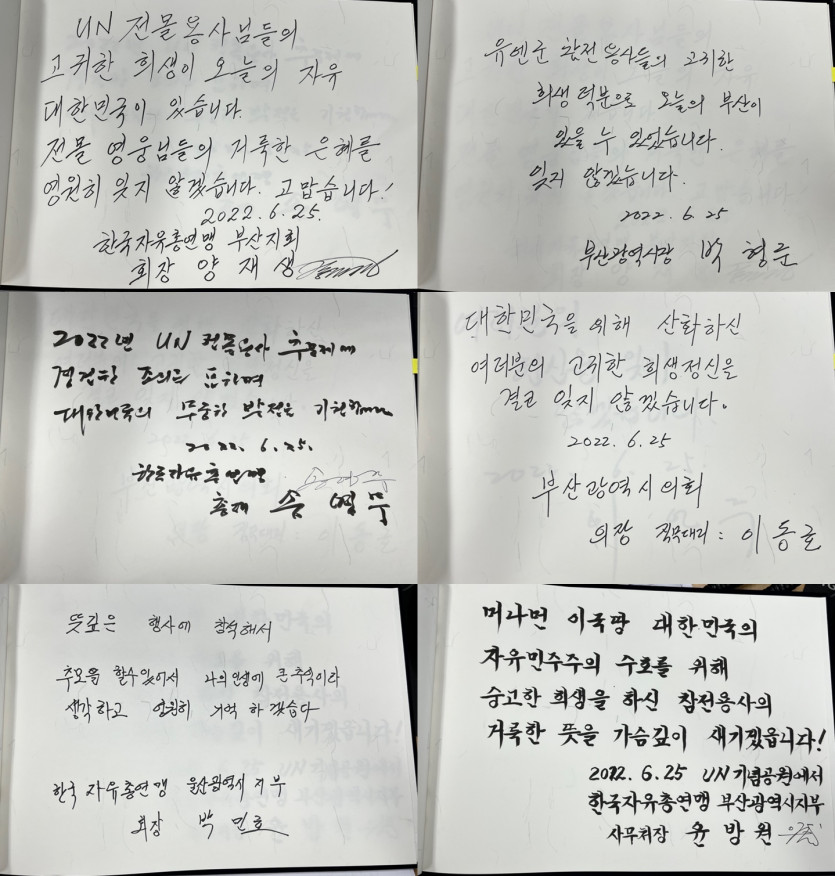 UN 전몰용사님들의
고귀한 희생이 오늘의 자유
대한민국이 있습니다.
전몰 영웅님들의 거룩한 은혜를
영원히 잊지 않겠습니다. 고맙습니다!
2022. 6. 25.
한국자유총연맹 부산지회
회장 양 재 생
유엔군 참전용사들의 고귀한
희생 덕분으로 오늘의 부산이
있을 수 있었습니다.
잊지 않겠습니다.
2022. 6. 25
부산광역시장 박 형 준
2022년 UN 전몰용사 추모제에
경건한 조의를 표하며
대한민국의 무궁한 발전을 기원합니다
2022. 6. 25.
한국자유총연맹
총재 송 영 무
대한민국을 위해 산화하신
여러분의 고귀한 희생정신을
결코 잊지 않겠습니다.
2022. 6. 25
부산광역시의회
의장 직무대리 : 이 동 호
뜻깊은 행사에 참석해서
추모를 할수 있어서 나의 인생에 큰 추억이라
생각하고 영원히 기억 하겠습다
한국 자유총연맹 울산광역시 지부
회장 박 민 호
머나먼 이국땅 대한민국의
자유민주주의 수호를 위해
숭고한 희생을 하신 참전용사의
거룩한 뜻을 가슴깊이 새기겠읍니다!
2022. 6. 25 UN기념공원에서
한국자유총연맹 부산광역시지부
사무처장 윤 방 원